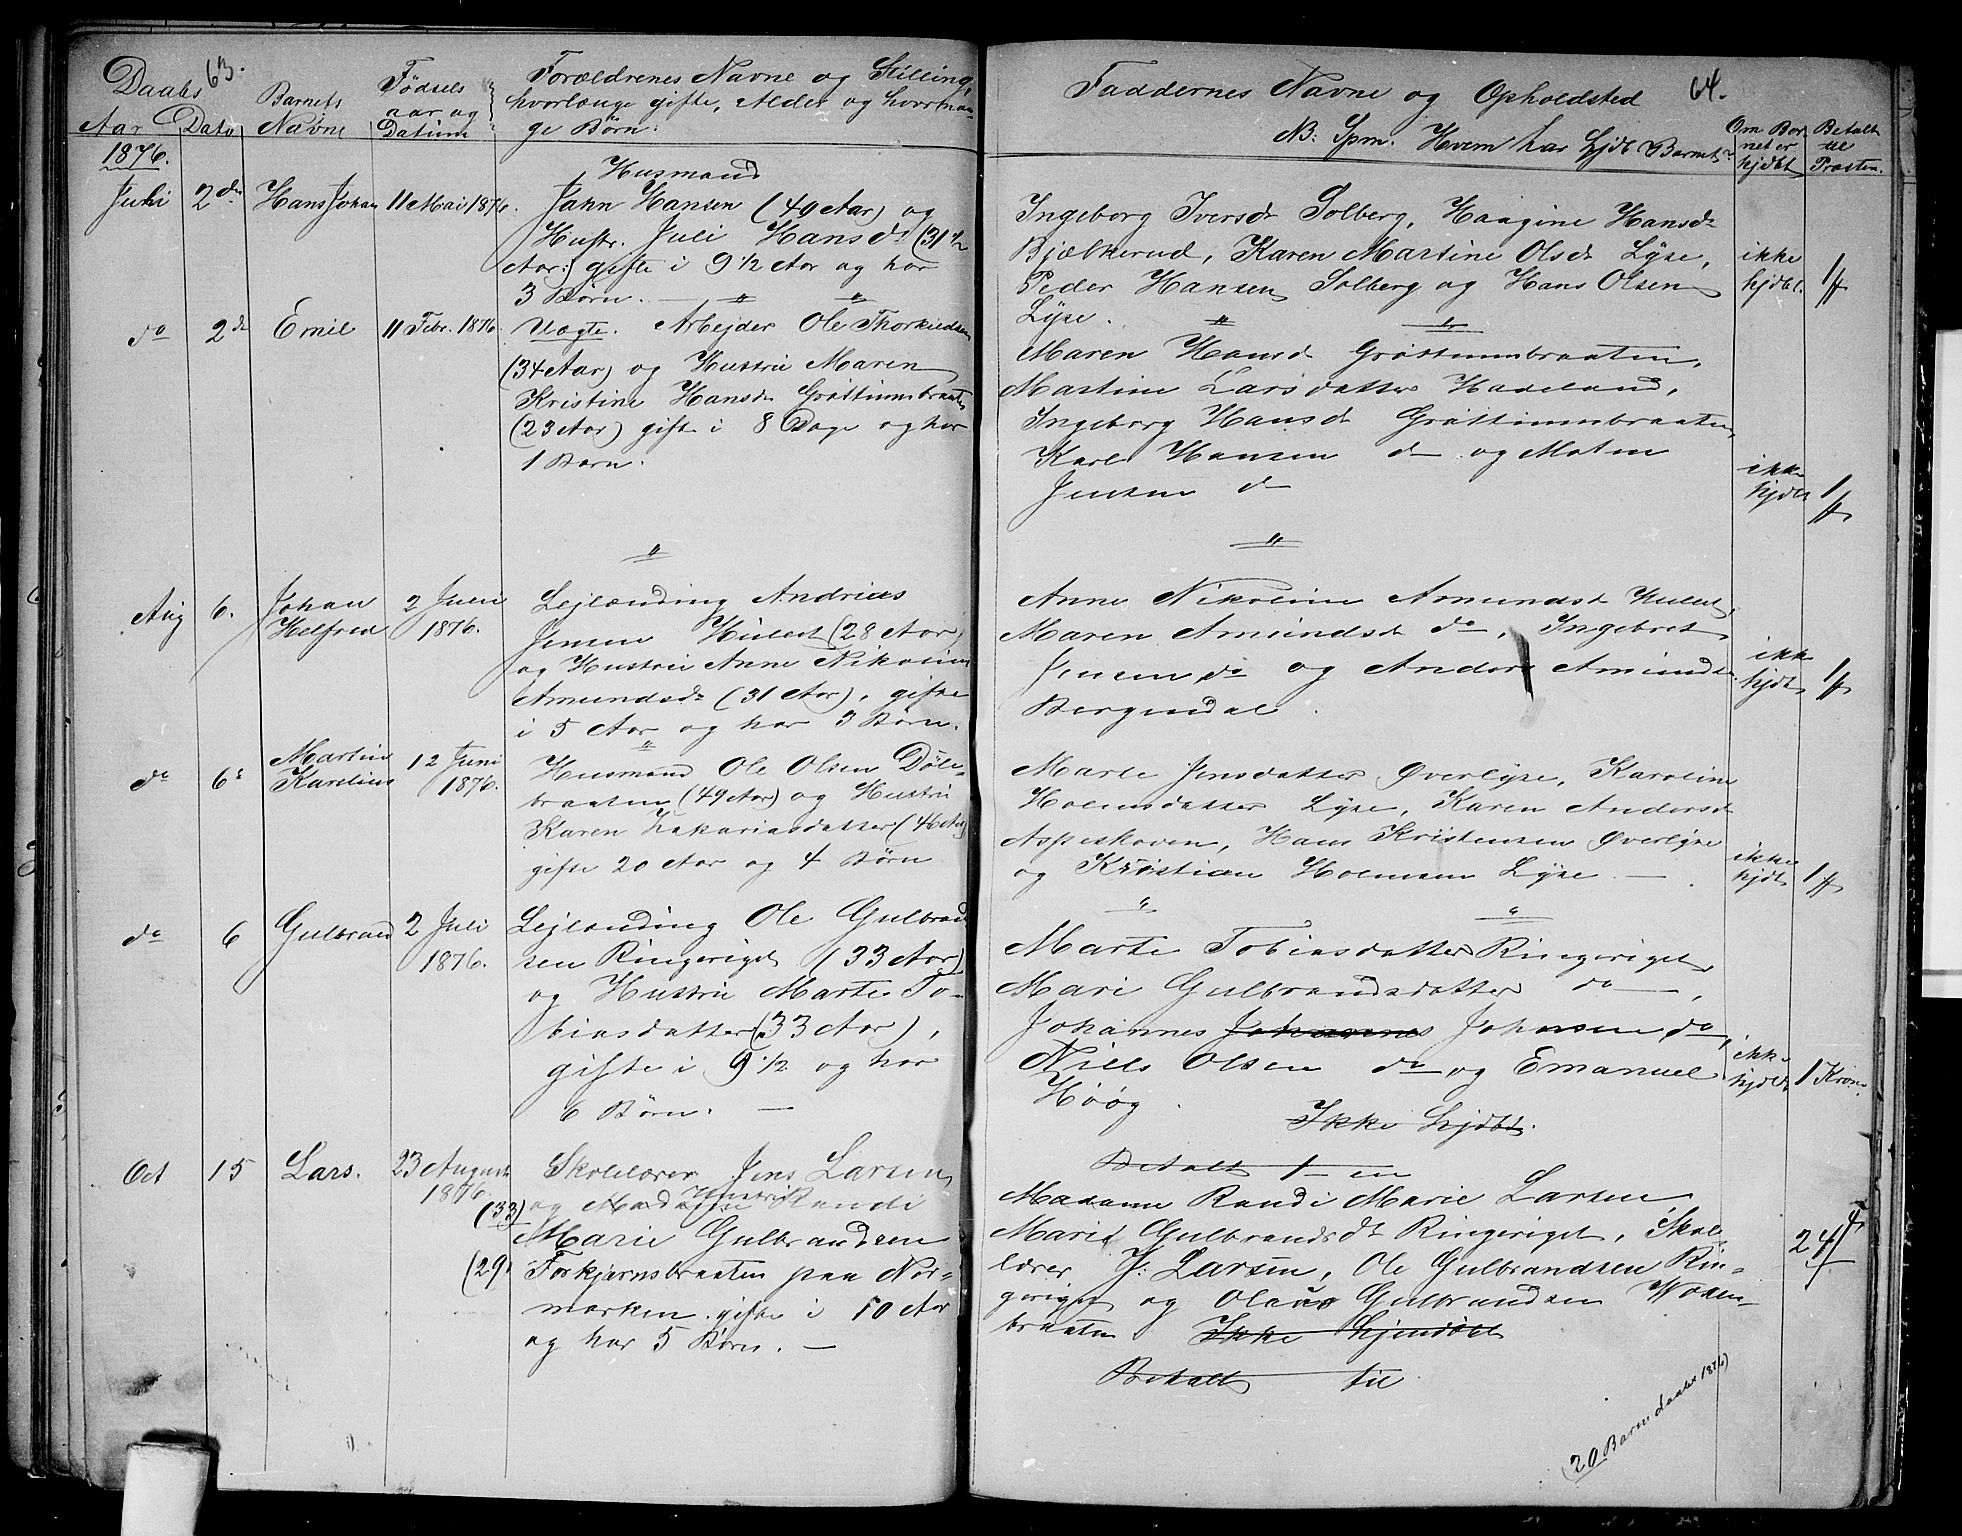 63.
Daabs
Aar Dato
Barnets Navne
Fødsels aar og Datum
Forældrenes Navne og Stilling,
hvorlænge gifte, Alder og hvorman-
ge Børn.
1876.
Juli 2den Hans Johan 11 Mai 1876.
Husmand
John Hansen (40 Aar) og
Hustr. Juli Hansd. (31 1/2
Aar) gifte i 9 1/2 Aar og har
3 Børn.
do 2d Emil 11 Febr. 1876.
Uægte. Arbejder Ole Thorkildsen
(34 Aar) og Hustru Maren
Kristine Hansd.
(23 Aar) gifte i 8 Dage og har
1 Barn.
Aug 6. Johan Helfred 2 Juli 1876.
Lejlænding Andreas
Jensen (28 Aar)
og Hustru Anne Nikoline
Amundsd. (31 Aar), gifte
i 5 Aar og har 3 Børn.
do 6 Martin Karelius 12 Juni 1876.
Husmand Ole Olsen Døle-
braaten (49 Aar) og Hustru
Karen Zakariasdatter (46 Aar)
gifte 20 Aar og 4 Børn
do 6 Gulbrand 2 Juli 1876.
Lejlænding Ole Gulbrand
sen Ringeriget (33 Aar)
og Hustru Marte To-
biasdatter (33 Aar),
gifte i 9 1/2 og har
6 Børn. —
Oct 15 Lars. 23 August 1876
Skolelærer Jens Larsen
(33) og Madame Hustru Randi
Marie Gulbrandsen
(29) Forkjærnsbraaten paa Nor-
marken gifte i 10 Aar
og har 5 Børn. —
64.
Faddernes Navne og Opholdsted
NB: Spm. Hvem har hjdbt Barnet?
Om Bar
net er
hjdbt
Betalt
til
Præsten.
Ingeborg Iversdr Solberg, Haagine Hansdr
Bjæbkerud, Karen Martine Olsdr Lyse,
Peder Hansen Solberg og Hans Olsen
Lyse.
ikke
hjdbt.
1
Maren Hansd
Martine Larsdatter Hadeland,
Ingeborg Hansd
Karl Hansen do og
Jensen do
ikke
hjdbt
1
Anne Nikoline Amundsd
Maren Amundsd do, Ingebret
Jensen do og Anders Amunds
Bergendal.
ikke
hjdbt
1
Marte Jensdatter Øverlyse, Karoline
Holmsdatter Lyse, Karen Andersd
Aspeskoven, Hans Kristensen Øverlyse
og Kristian Holmsen Lyse. —
ikke
hjdbt
1
Marte Tobiasdatter Ringeriget,
Mari Gulbrandsdatter do —,
Johannes Johannes Johnsen do,
Niels Olsen do og Emanuel
Høøg.
ikke
hjdbt
1 Krone
Ikke hjdbt.
Betalt 1 — en
Madame Randi Marie Larsen
Marie Gulbrandsdt Ringeriget, Skol
lærer J: Larsen, Ole Gulbrandsen Rin-
geriget og Olaus Gulbrandsen
braaten
24
Ikke hjemdbt
Betalt til
20 Børn daabt 1876)